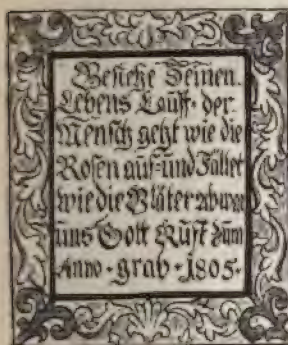 Besiehe Deinen
Lebens Lauff · der
Mensch geht wie die
Rosen auf= und Fället
wie die Bläter ab wan
uns Gott Rufft zum
Anno · grab · 1805 ·